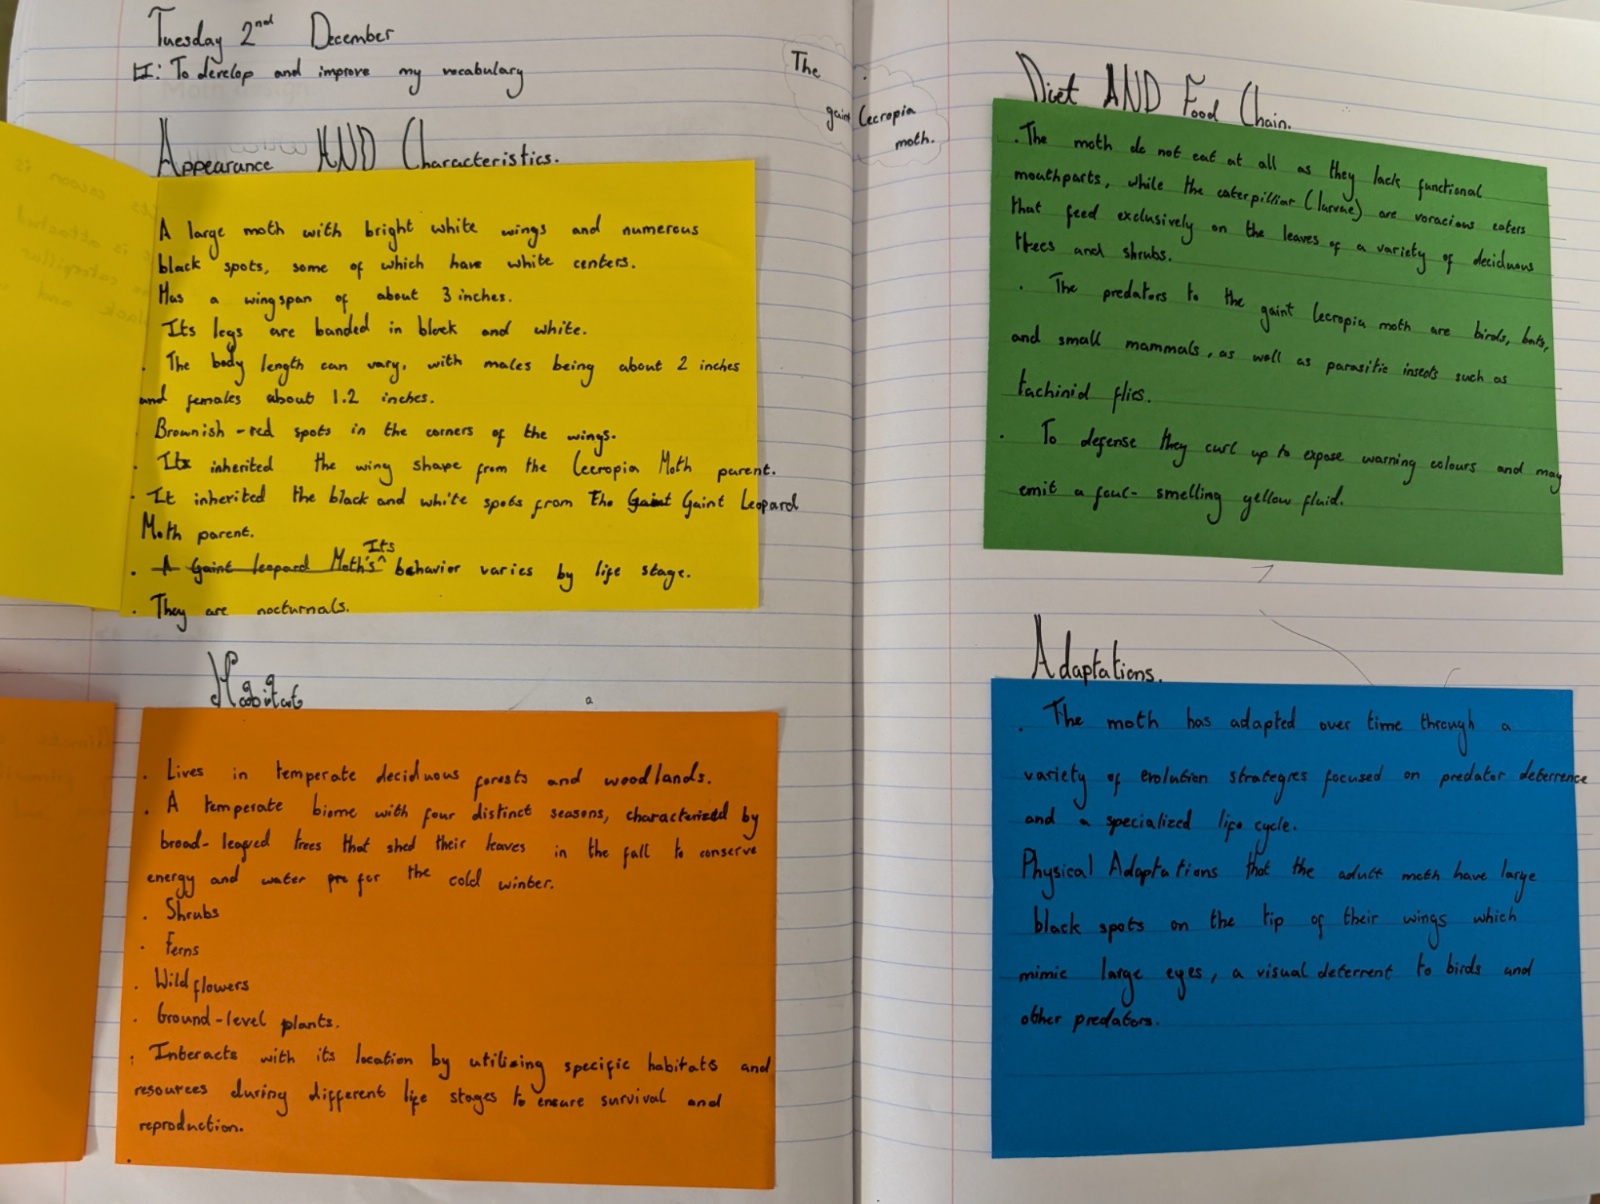 Tuesday 2nd December
LI: To develop and improve my vocabulary
The
gaint Cecropia
moth.
Appearance AND Characteristics.
A large moth with bright white wings and numerous
black spots, some of which have white centers.
Has a wingspan of about 3 inches.
Its legs are banded in black and white.
. The body length can vary, with males being about 2 inches
and females about 1.2 inches.
Brownish-red spots in the corners of the wings.
. It inherited the wing shape from the Cecropia Moth parent.
. It inherited the black and white spots from the Gaint Gaint Leopard
Moth parent.
. A Gaint leopard Moth's Its behavior varies by life stage.
. They are nocturnals.
Habitat
. Lives in temperate deciduous forests and woodlands.
. A temperate biome with four distinct seasons, characterized by
broad-leaved trees that shed their leaves in the fall to conserve
energy and water pre for the cold winter.
. Shrubs
. Ferns
. Wild flowers
. Ground-level plants.
. Interacts with its location by utilising specific habitats and
resources during different life stages to ensure survival and
reproduction.
Diet AND Food Chain.
. The moth do not eat at all as they lack functional
mouthparts, while the caterpilliar (larvae) are voracious eaters
that feed exclusively on the leaves of a variety of deciduous
trees and shrubs.
. The predators to the gaint Cecropia moth are birds, bats,
and small mammals, as well as parasitic insects such as
tachinid flies.
. To defense they curl up to expose warning colours and may
emit a foul-smelling yellow fluid.
Adaptations.
. The moth has adapted over time through a
variety of evolution strategies focused on predator deterrence
and a specialized life cycle.
Physical Adaptations that the adult moth have large
black spots on the tip of their wings which
mimic large eyes, a visual deterrent to birds and
other predators.